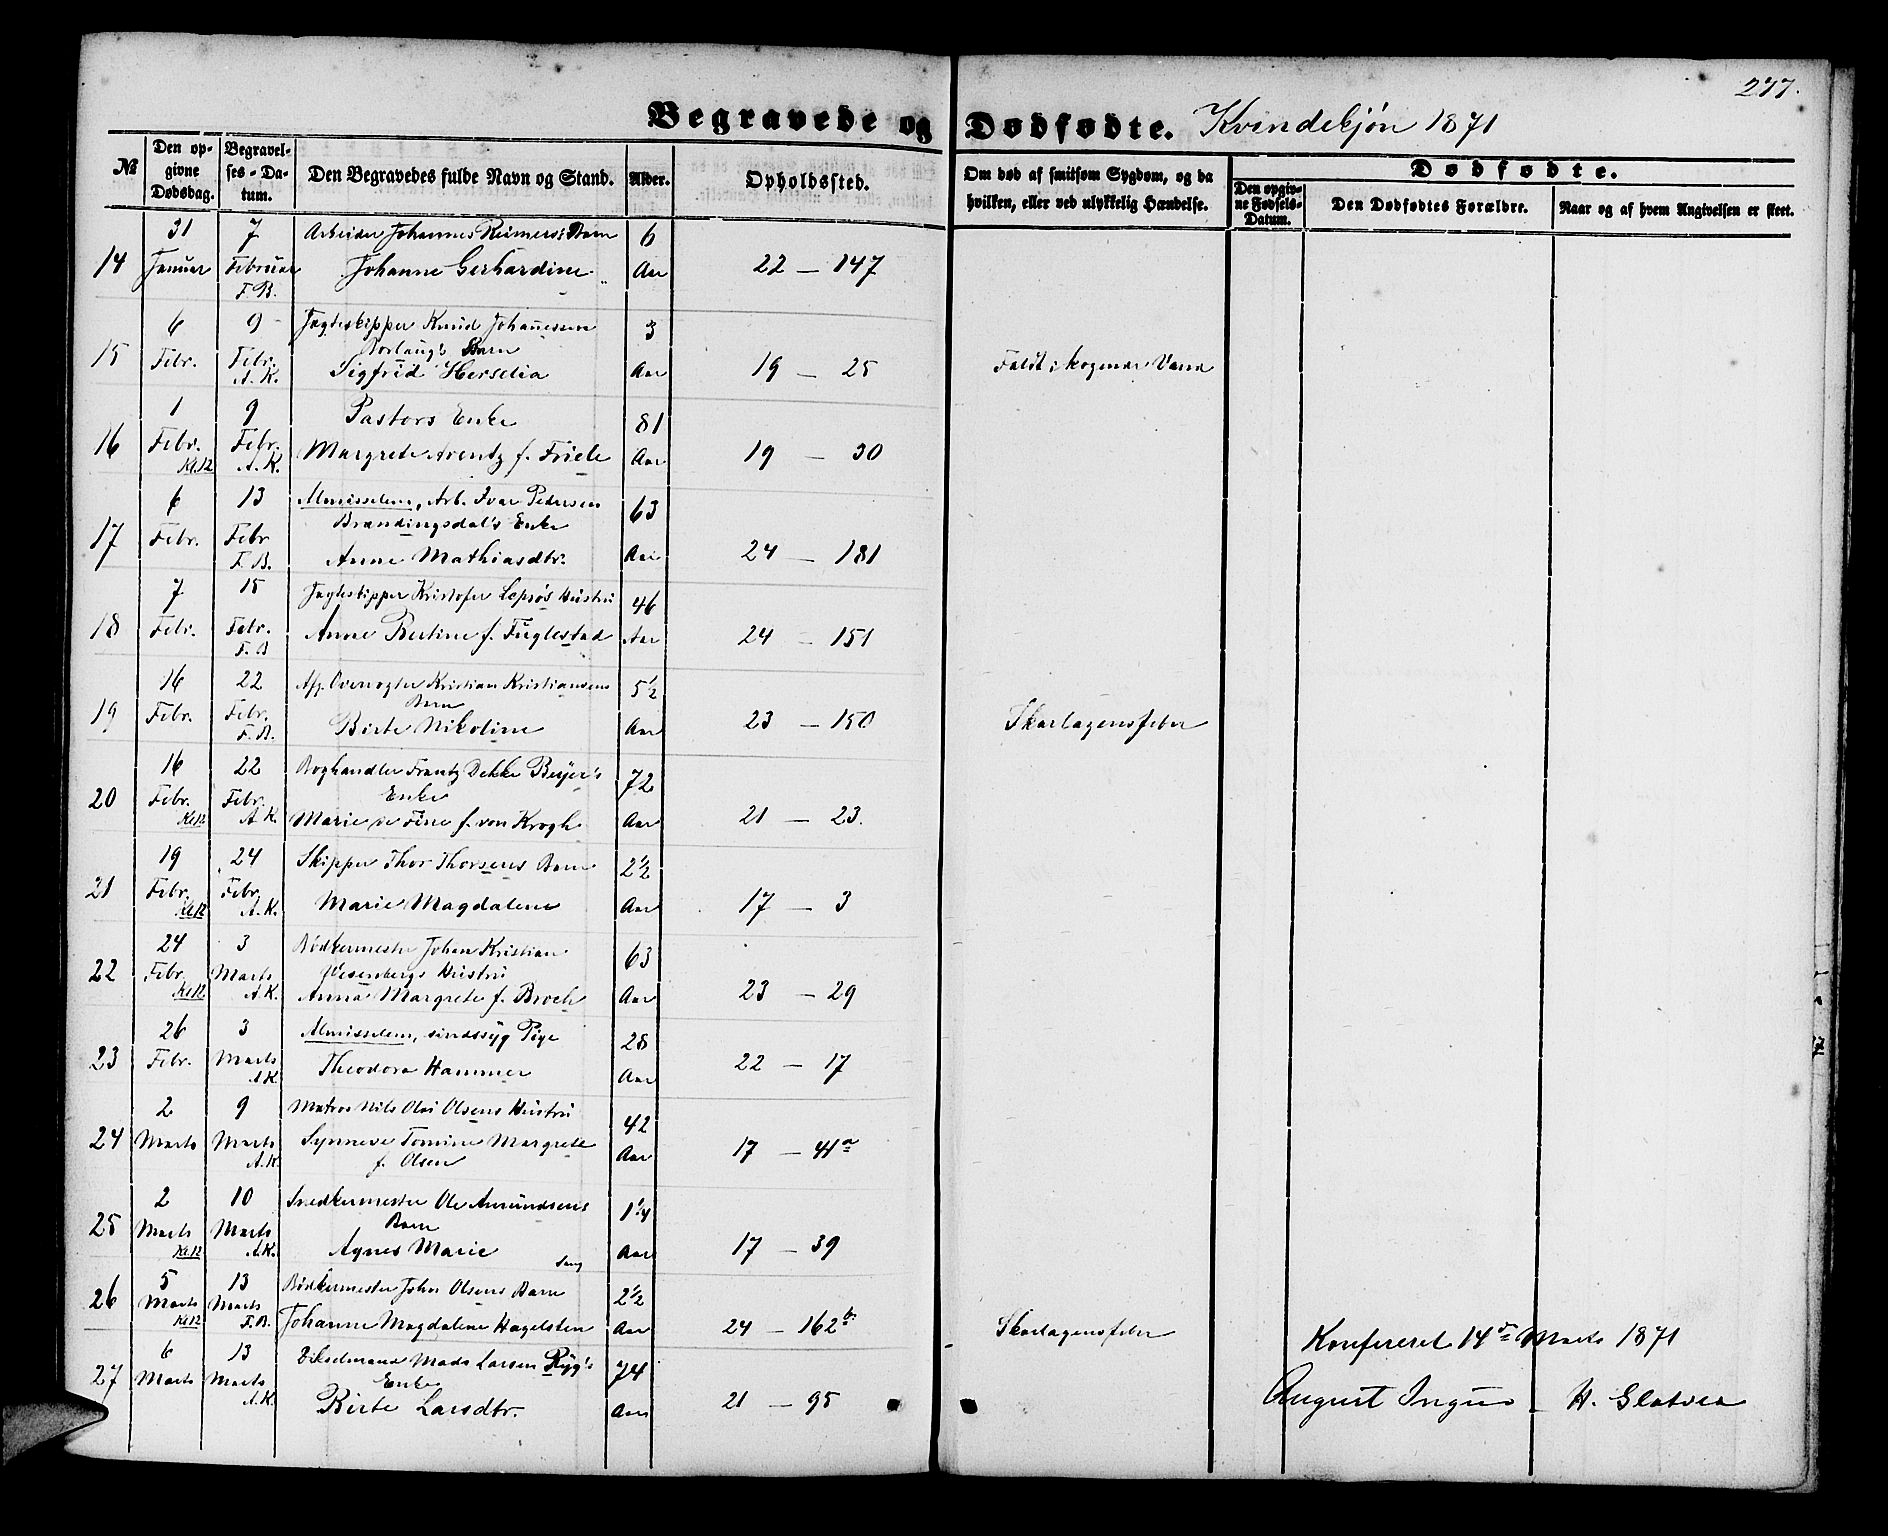 277.
Begravede og Dødfødte. Kvindekjøn 1871
№
Den opgivne Dødsdag.
Begravelses-Datum.
Den Begravedes fulde Navn og Stand.
Alder.
Opholdssted.
Om død af smitsom Sygdom, og da hvilken, eller ved ulykkelig Hændelse.
Dødfødte.
Den opgivne Fødsels-Datum.
Den Dødfødtes Forældre.
Naar og af hvem Angivelsen er skeet.
31 7 Arbeider Johannes Reimers's Barn 6
14 Januar Februar Johanne Gerhardine Aar 22 — 147
F. B.
6 9 Jagteskipper Knud Johanessen 3
Barn
15 Febr. Febr. Sigfrid Herselia Aar 19 — 25 Faldt i kogende Vand
A. K.
1 9 Pastors Enke 81
16 Febr. Febr. Margrete Arentz f. Friele Aar 19 — 30
Kl.12 A. K.
6 13 Almisselem, Arb. Ivar Pedersen 63
Brændingsdal's Enke
17 Febr. Febr Anne Mathiasdtr. Aar 24 — 181
F. B.
7 15 Jagteskipper Kristofer Lepsøs Hustru 46
18 Febr. Febr. Anne Bertine f. Fuglestad Aar 24 — 151
F. B
16 22 Afg. Kristian Kristiansens 5½
Barn
19 Febr. Febr. Birte Nikoline Aar 23 — 150 Skarlagensfeber
F. B.
16 22 Boghandler Frantz Dekke Beyer's 72
Enke
20 Febr. Febr. Marie de Fine f. von Krogh Aar 21 — 23.
Kl.12 A. K.
19 24 Skipper Thor Thorsens Barn 2½
21 Febr. Febr. Marie Magdalene Aar 17 — 3
Kl.12 A. K.
24 3 Bødkermester Johan Kristian 63
Wesenbergs Hustru
22 Febr. Marts Anna Margrete f. Broch Aar 23 — 29
Kl.12 A. K.
26 3 Almisselem, sindssyg Pige 28
23 Febr. Marts Theodora Hammer Aar 22 — 17
A. K.
2 9 Matros Nils Olai Olsens Hustru 42
24 Marts Marts Synneve Tomine Margrete Aar 17 — 41a
A. K. f. Olsen
2 10 Snedkermester Ole Amundsens 1¼
Barn
25 Marts Marts Agnes Marie Aar 17 — 39
Kl.12 A. K.
5 13 Bødkermester Johan Olsens Barn 2½
26 Marts Marts Johanne Magdalene Hagelsten Aar 24 — 162b Skarlagensfeber
Kl.12 F. B.
6 13 Mads Larsen Ryg's 74
Enke
27 Marts Marts Birte Larsdtr. Aar 21 — 95
A. K.
Konfereret 14de Marts 1871
August H.